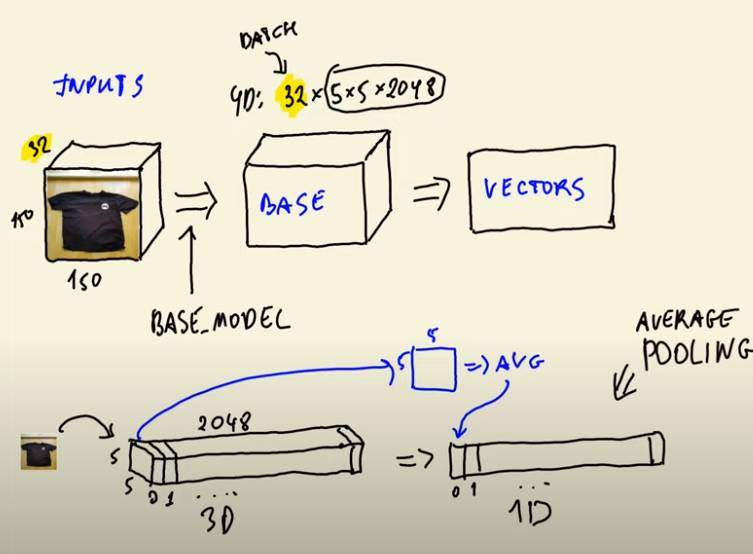 BATCH
INPUTS
4D: 32 × 5×5×2048
32
150
BASE
VECTORS
150
BASE_MODEL
AVERAGE
POOLING
5
5
=> AVG
2048
5
5
0 1
....
3D
=>
0 1
...
1D